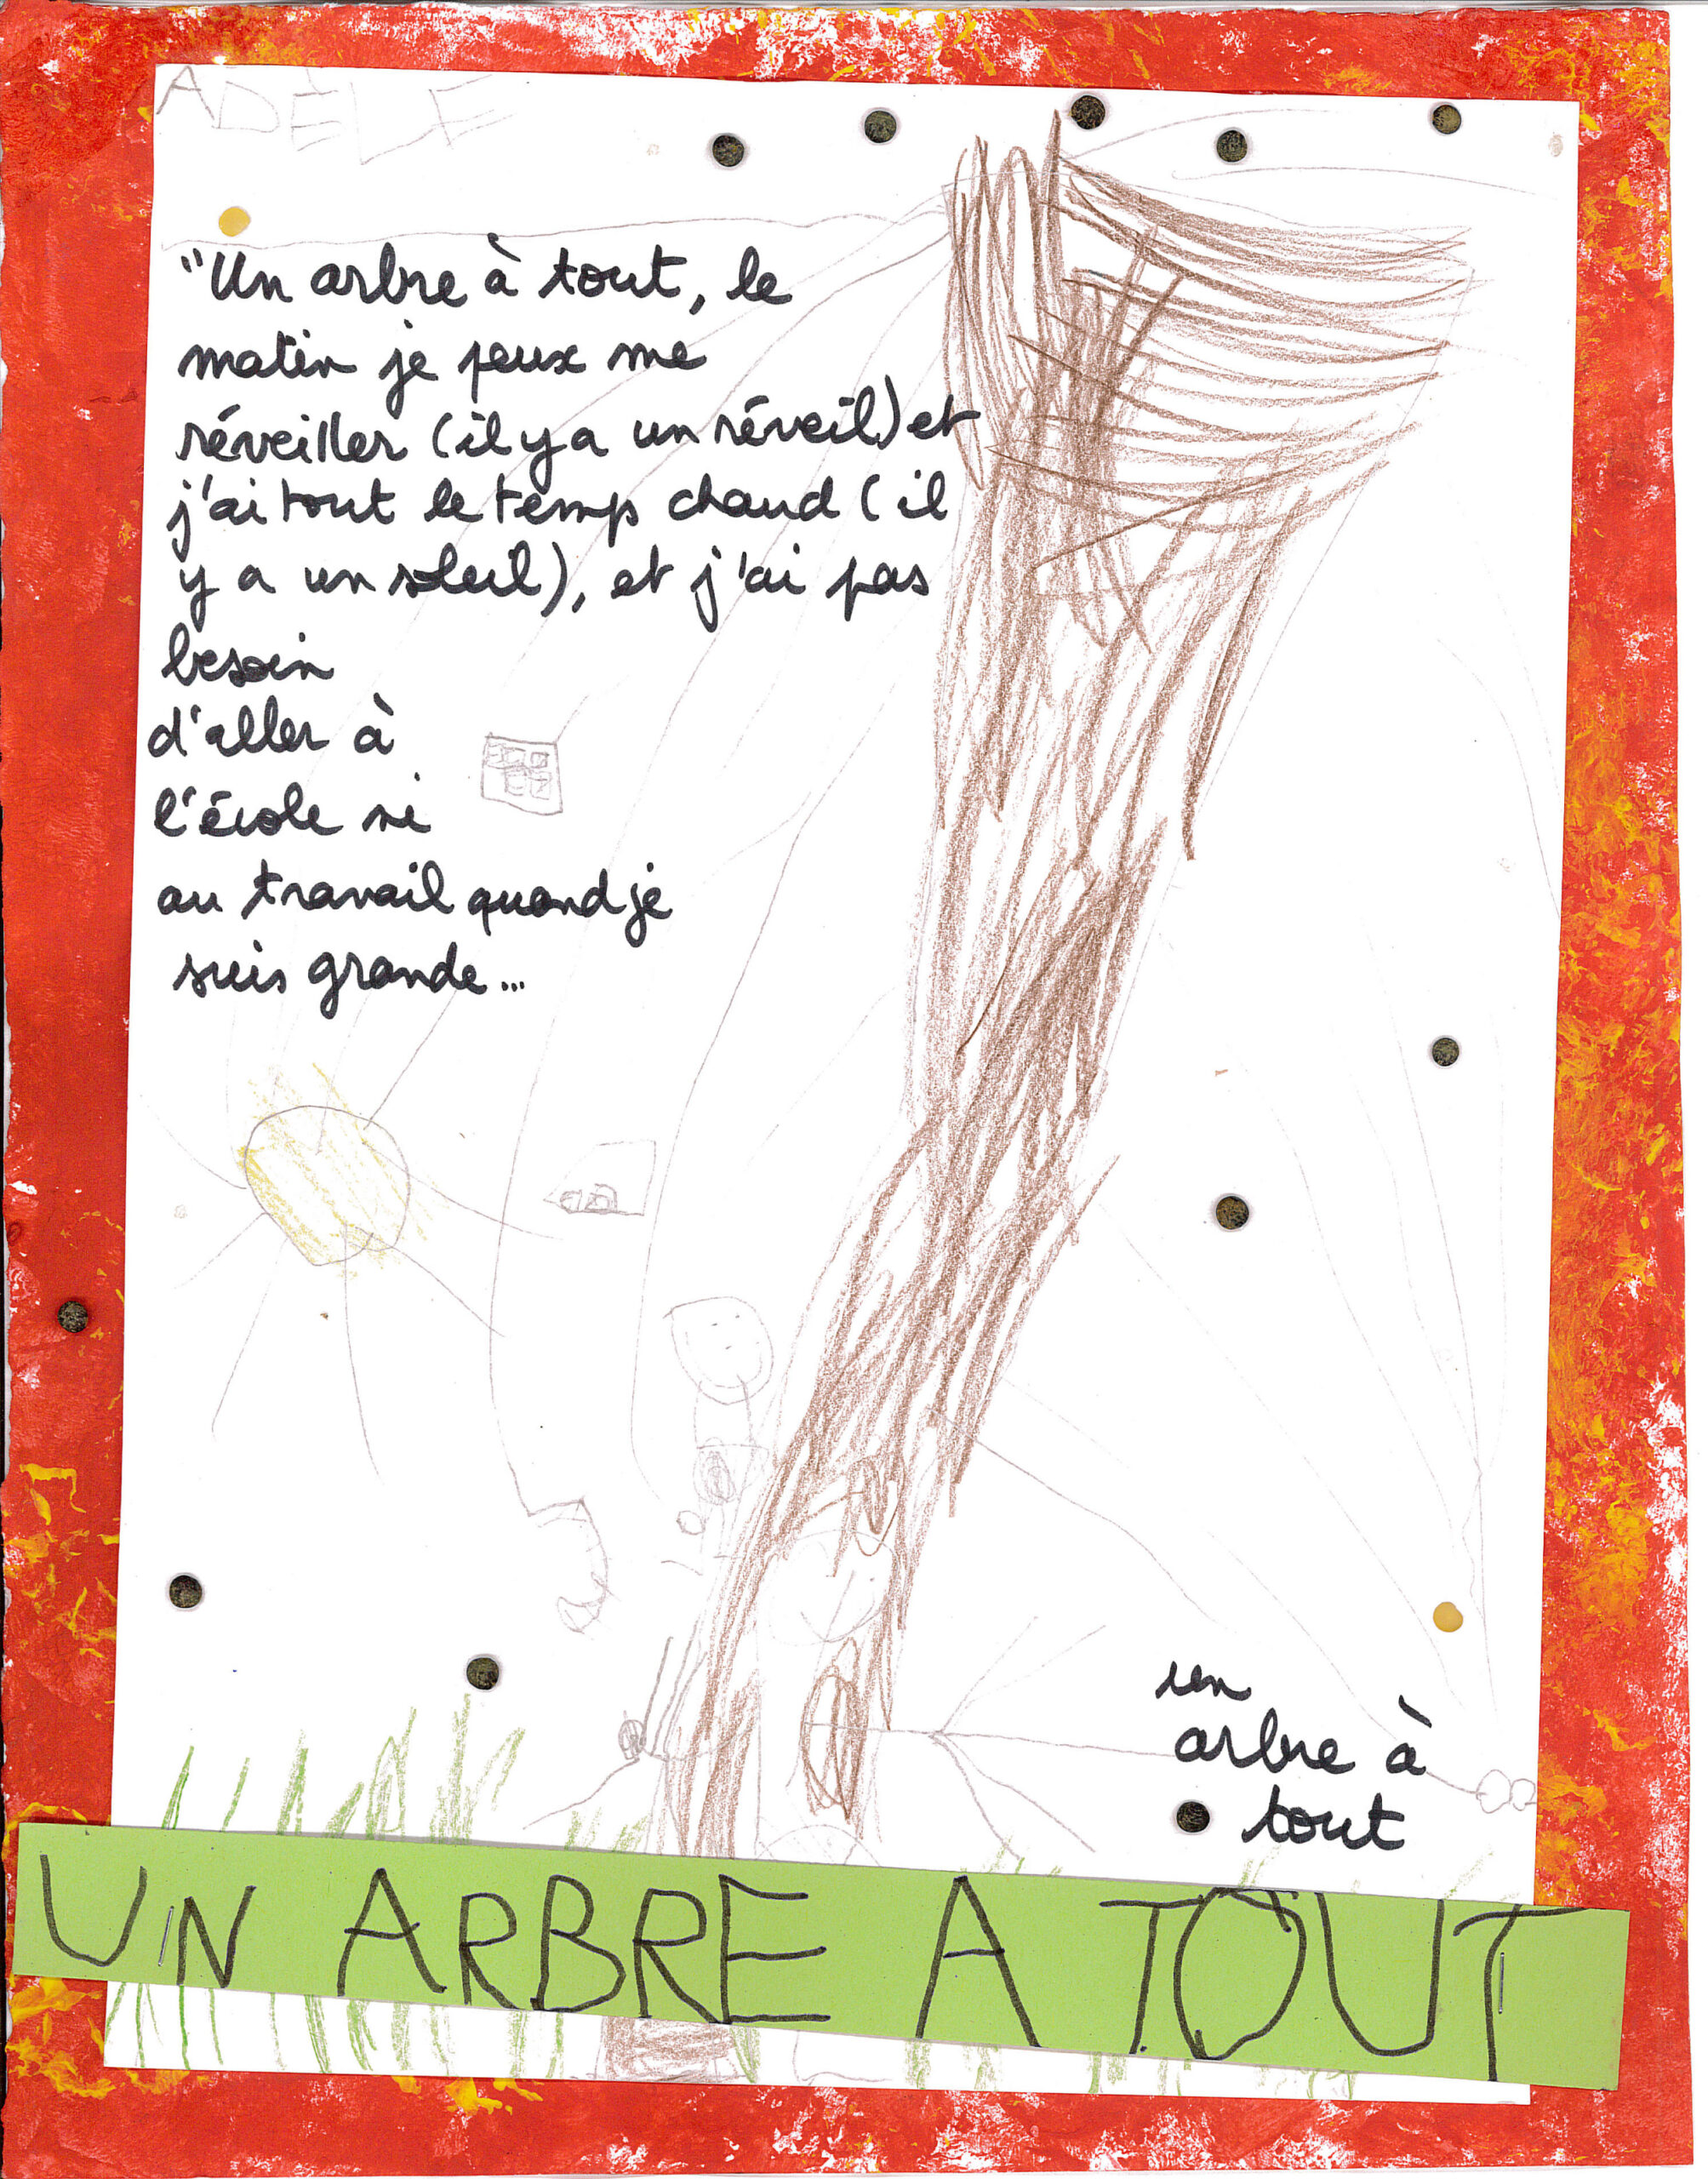 ADÈLE
"Un arbre à tout, le
matin je peux me
réveiller (il y a un réveil) et
j'ai tout le temps chaud (il
y a un soleil), et j'ai pas
besoin
d'aller à
l'école ni
au travail quand je
suis grande...
un
arbre à
tout
UN ARBRE A TOUT